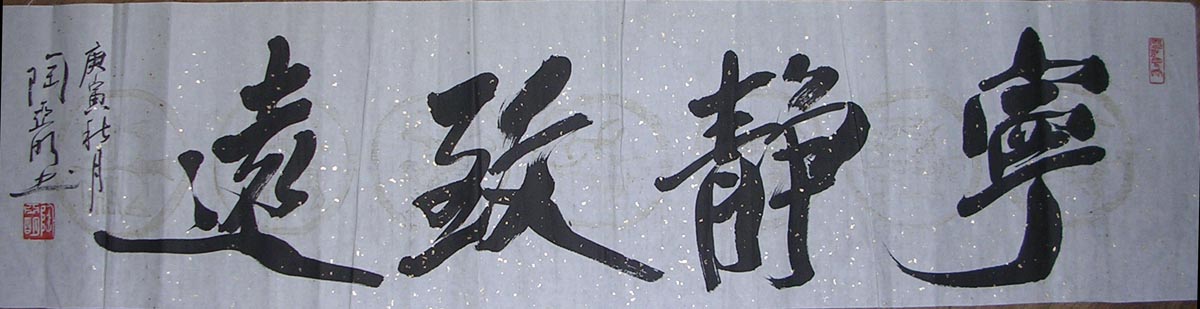 寧靜致遠
庚寅秋月
陶亞明书